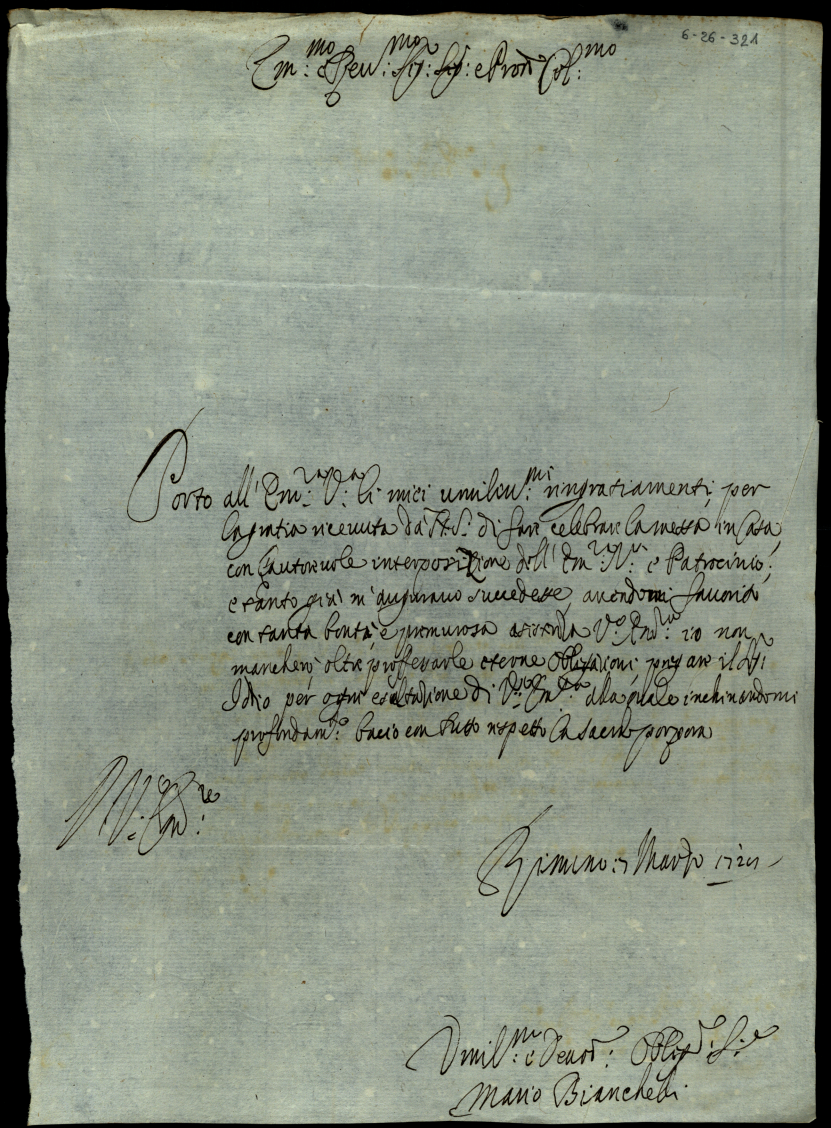 6-26-321
Em:mo e Rev:mo Sig: Sig: e Pron Col:mo
Porto all' Em:za V:a li miei umiliss:mi ringratiamenti per
la gratia ricevuta da N.S. di fare celebrar la messa in Casa,
con l'autorevole interposizione dell' Em:za V:a e Patrocinio;
e tanto già m'auguravo succedesse, avendomi favorito
con tanta bontà e premurosa assistenza V:a Em:za io non
mancherò oltre professarle eterne obligazioni, pregare il
Idio per ogni esaltazione di V:a Em:za alla quale inchinandomi
profondam:te bacio con tutto rispetto la sacra porpora
V: Em:re
Rimino: 7 Marzo
Umil:mo e Devot: Oblig: S:re
Mario Bianchelli